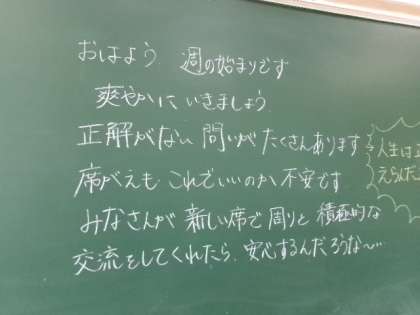 おはよう 週の始まりです
爽やかに いきましょう
正解がない 問いが たくさんあります
席がえも これでいいのか 不安です
みなさんが 新しい席で 周りと 積極的な
交流をしてくれたら、安心するんだろうな〜
人生は
えられた